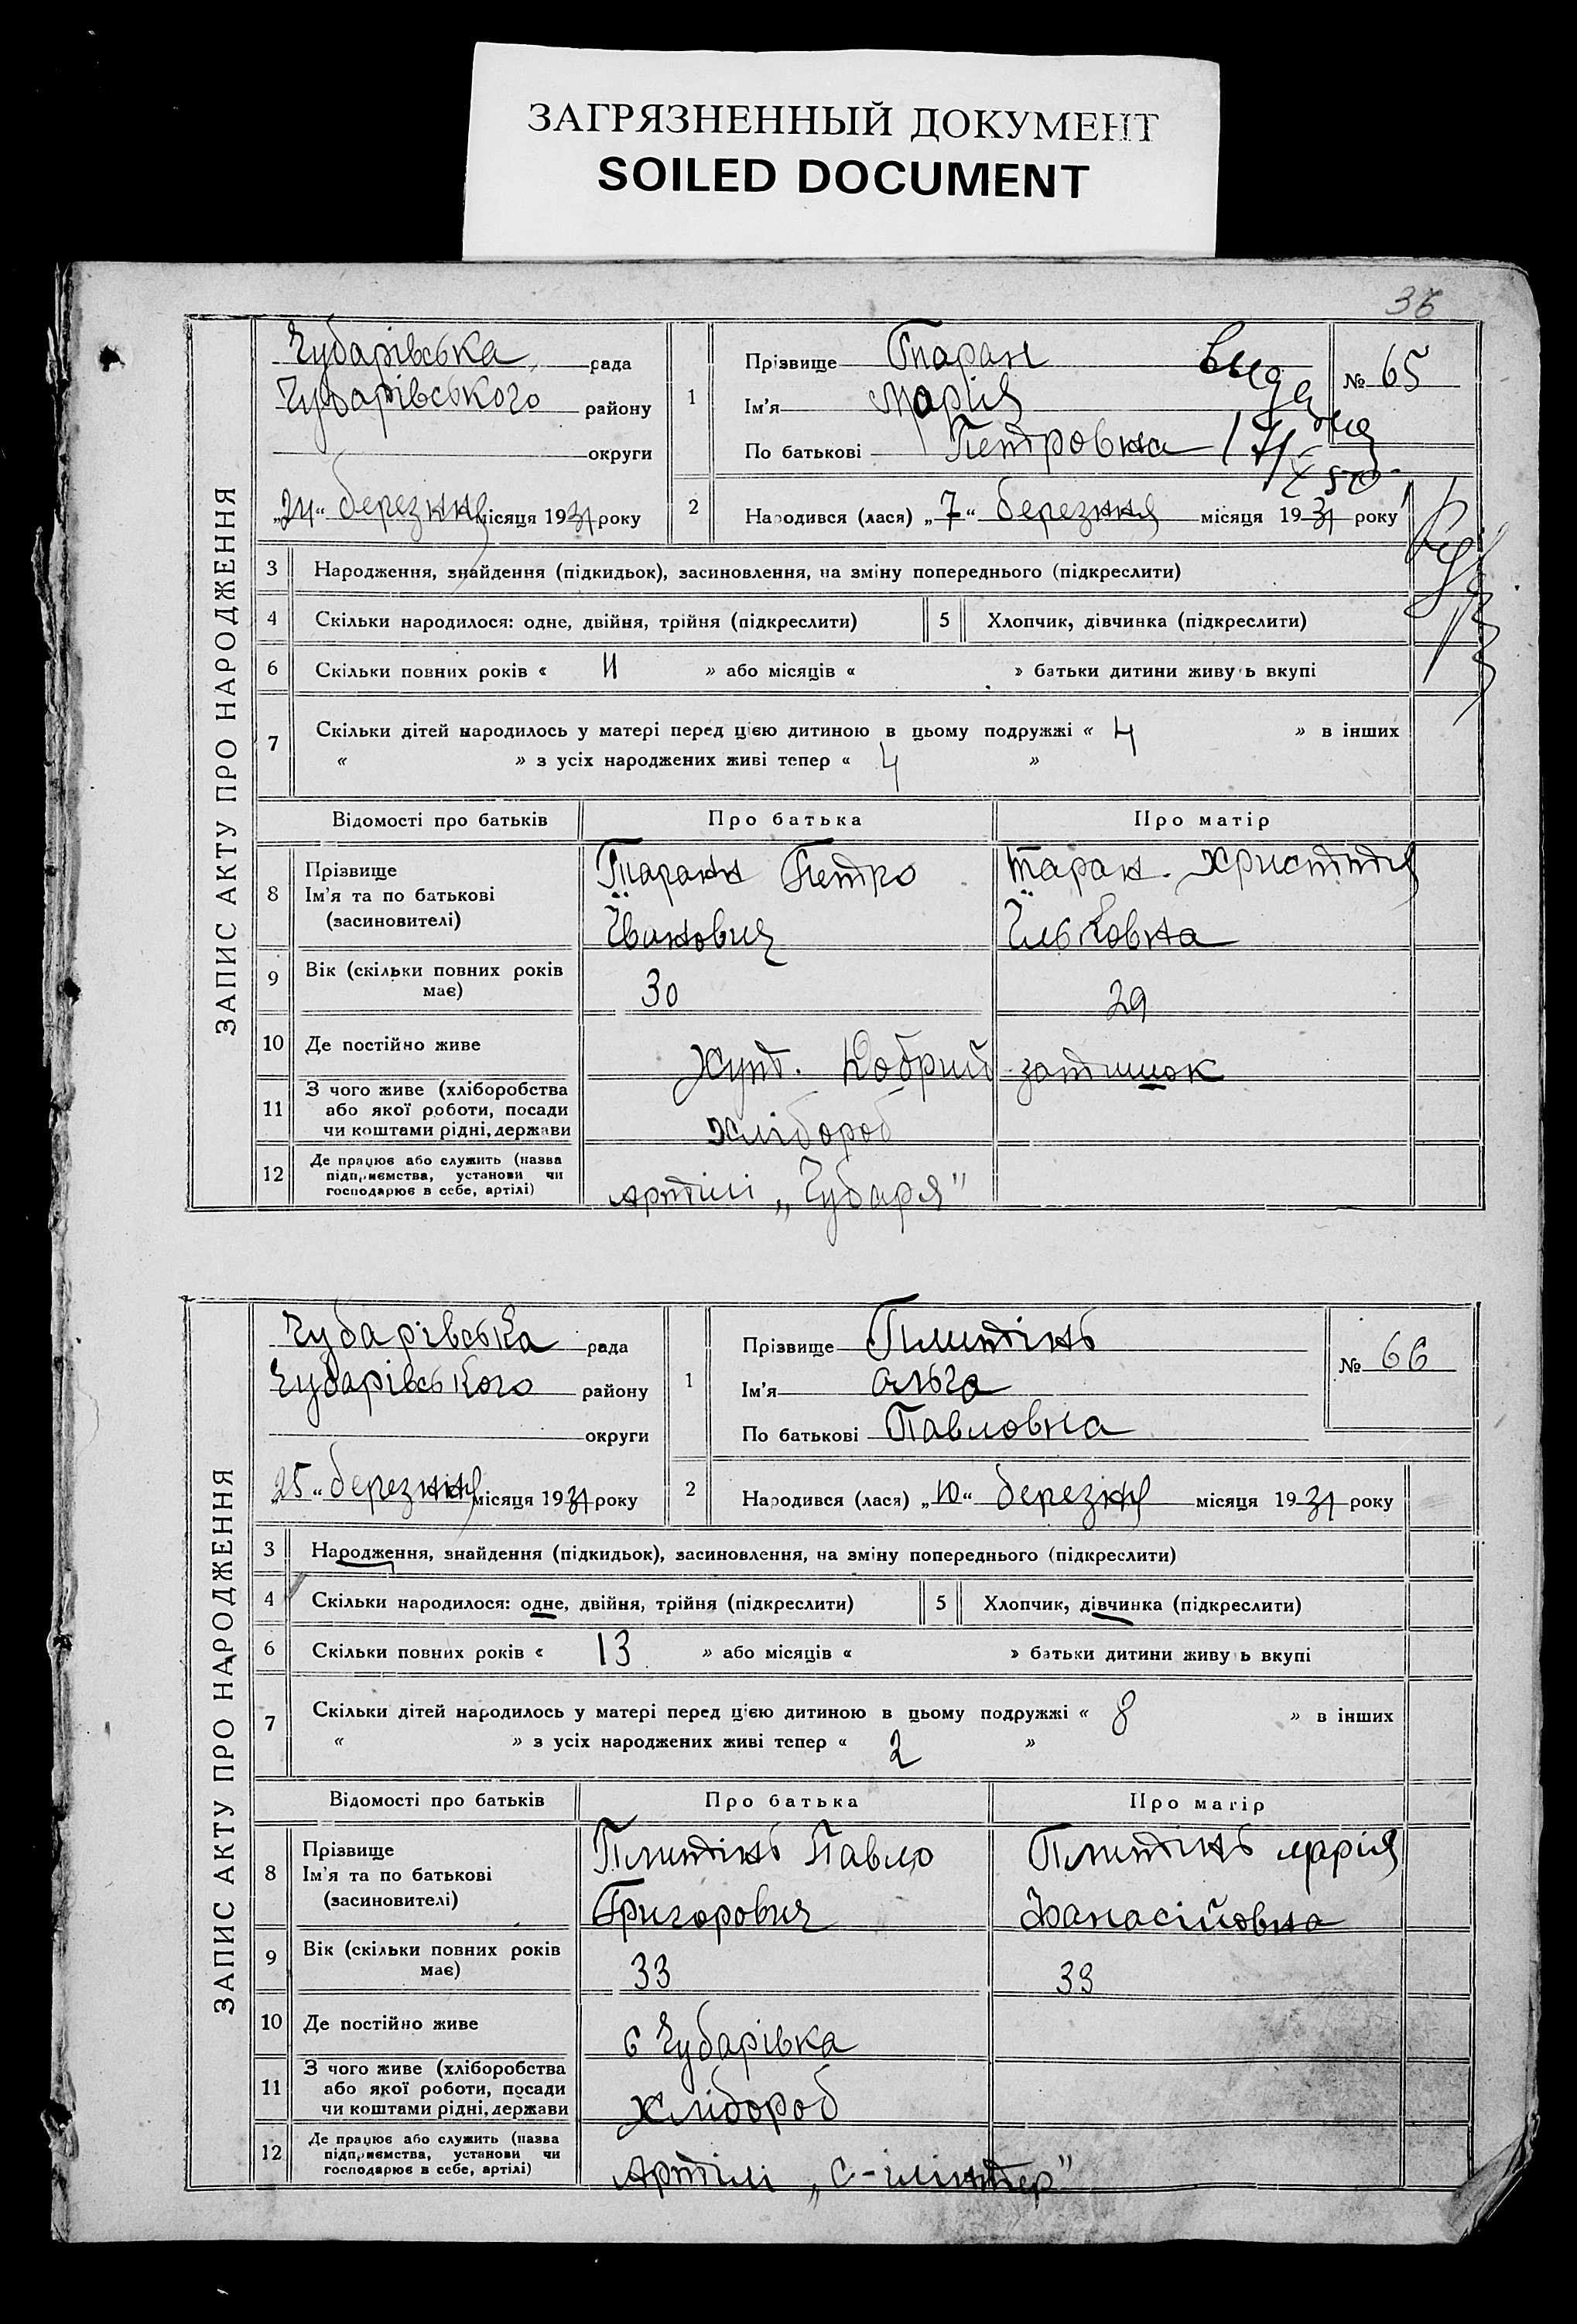 ЗАГРЯЗНЕННЫЙ ДОКУМЕНТ
SOILED DOCUMENT
36
ЗАПИС АКТУ ПРО НАРОДЖЕННЯ
Чубарівська рада
Чубарівського району
округи
„24“ березня місяця 1931 року
1
Прізвище Таран
Ім'я Марія
По батькові Петровна
№ 65
2
Народився (лася) „7“ березня місяця 1931 року
3 Народження, знайдення (підкидьок), засиновлення, на зміну попереднього (підкреслити)
4 Скільки народилося: одне, двійня, трійня (підкреслити) 5 Хлопчик, дівчинка (підкреслити)
6 Скільки повних років « 11 » або місяців « » батьки дитини живуть вкупі
7 Скільки дітей народилось у матері перед цією дитиною в цьому подружжі « 4 » в інших
« » з усіх народжених живі тепер « 4 »
Відомості про батьків Про батька Про матір
8 Прізвище Ім'я та по батькові (засновителі)
Таран Петро
Іванович
Таран Христития
Ильковна
9 Вік (скільки повних років має) 30 29
10 Де постійно живе Хут. Добрий затишок
11 З чого живе (хліборобства або якої роботи, посади чи коштами рідні, держави Хлібороб
12 Де працює або служить (назва підприємства, установи чи господарює в себе, артілі) Артілі „Чубаря"
ЗАПИС АКТУ ПРО НАРОДЖЕННЯ
Чубарівська рада
Чубарівського району
округи
„25“ березня місяця 1931 року
1
Прізвище Плитінь
Ім'я Ольга
По батькові Павловна
№ 66
2
Народився (лася) „10“ березня місяця 1931 року
3 Народження, знайдення (підкидьок), засиновлення, на зміну попереднього (підкреслити)
4 Скільки народилося: одне, двійня, трійня (підкреслити) 5 Хлопчик, дівчинка (підкреслити)
6 Скільки повних років « 13 » або місяців « » батьки дитини живуть вкупі
7 Скільки дітей народилось у матері перед цією дитиною в цьому подружжі « 8 » в інших
« » з усіх народжених живі тепер « 2 »
Відомості про батьків Про батька Про матір
8 Прізвище Ім'я та по батькові (засиновителі)
Плитінь Павло
Григорович
Плитінь Марія
Афанасіїовна
9 Вік (скільки повних років має) 33 33
10 Де постійно живе с Чубарівка
11 З чого живе (хліборобства або якої роботи, посади чи коштами рідні, держави Хлібороб
12 Де працює або служить (назва підприємства, установи чи господарює в себе, артілі) Артілі